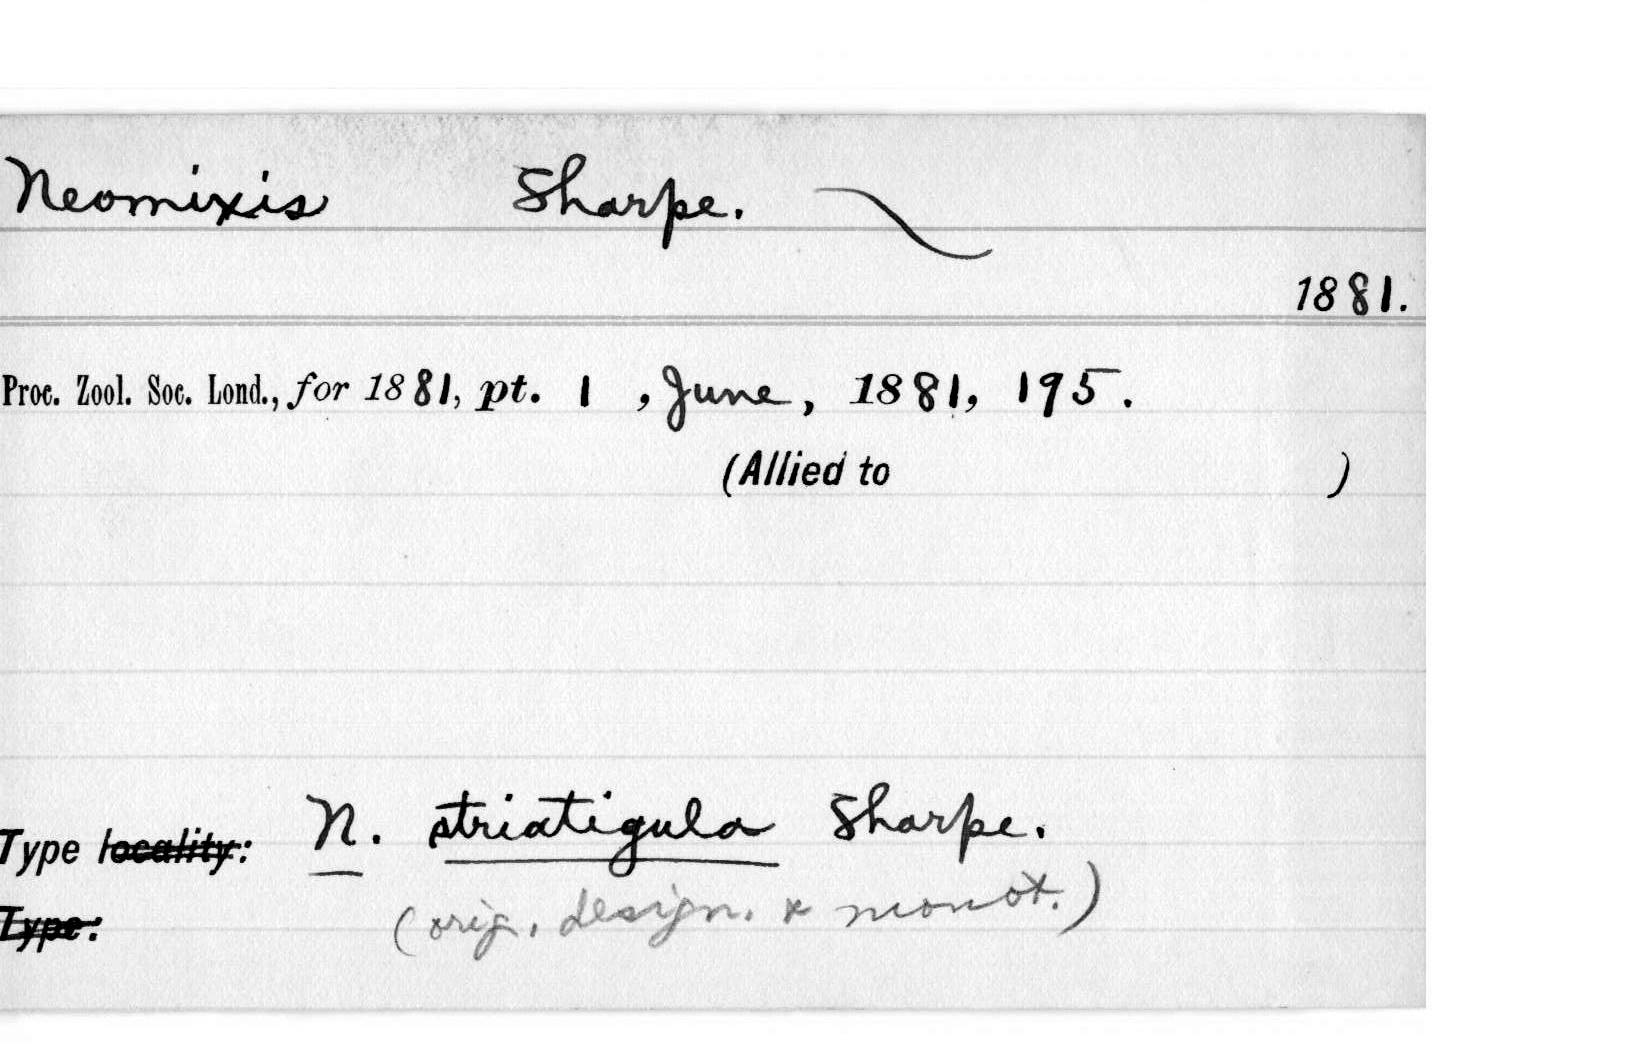 Neomixis Sharpe.
1881.
Proc. Zool. Soc. Lond., for 1881, pt. 1, June, 1881, 195.
(Allied to )
Type locality: N. striatigula Sharpe.
Type: (orig. design. & monot.)